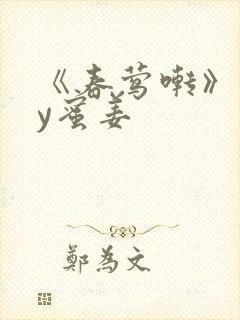 《春莺啭》
y蜜姜
鄭為文